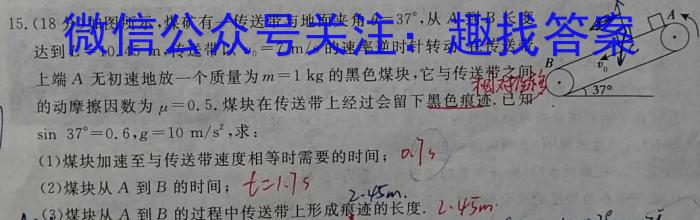 15.(18分)如图所示,煤矿有一传送带与地面夹角θ=37°,从A到B长度
达到L=10.45m,传送带以v₀=7m/s的速率逆时针转动.在传送带
微信公众号关注:趣找答案
上端A无初速地放一个质量为m=1 kg的黑色煤块,它与传送带之间
的动摩擦因数为μ=0.5.煤块在传送带上经过会留下黑色痕迹.已知
相对位移
sin 37°=0.6,g=10 m/s²,求:
A
B
v₀
37°
(1)煤块加速至与传送带速度相等时需要的时间; 0.7s
(2)煤块从A到B的时间; t=1.7s
2.45m.
(3)煤块从A到B的过程中传送带上形成痕迹的长度. 2.45m.